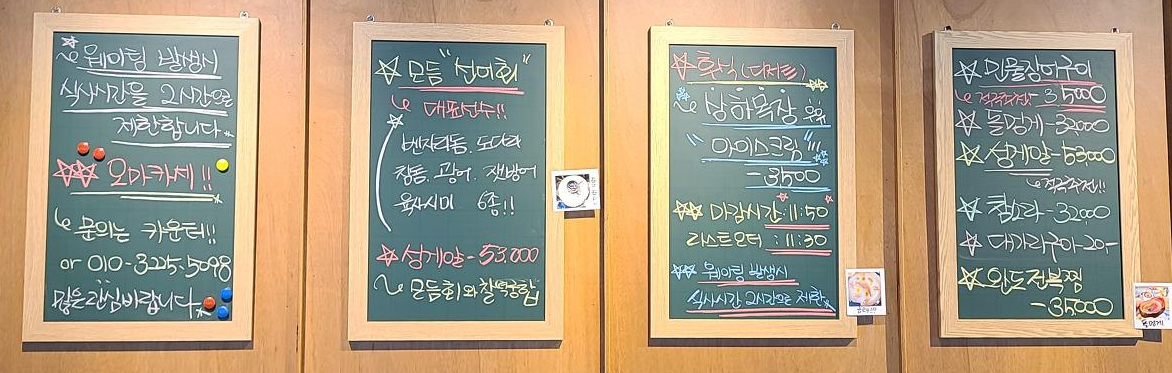 웨이팅 발생시
식사시간을 2시간으로
제한합니다.
오마카세!!
문의는 카운터!!
or 010-3225-5098
많은관심바랍니다.
모듬 "선어회"
대표선수!!
벤자리돔. 도다리
참돔. 광어. 잿방어
육사시미 6종!!
성게알-53.000
모듬회와 찰떡궁합
후식(디저트)
상하목장 우유
"아이스크림"
-3500
마감시간:11:50
라스트오더 :11:30
웨이팅 발생시
식사시간 2시간으로 제한
민물장어구이
적극추천-35000
돌멍게-32000
성게알-53000
적극추천!!
참소라-32000
대가리구이-20-
완도전복찜
-35000
돌멍게